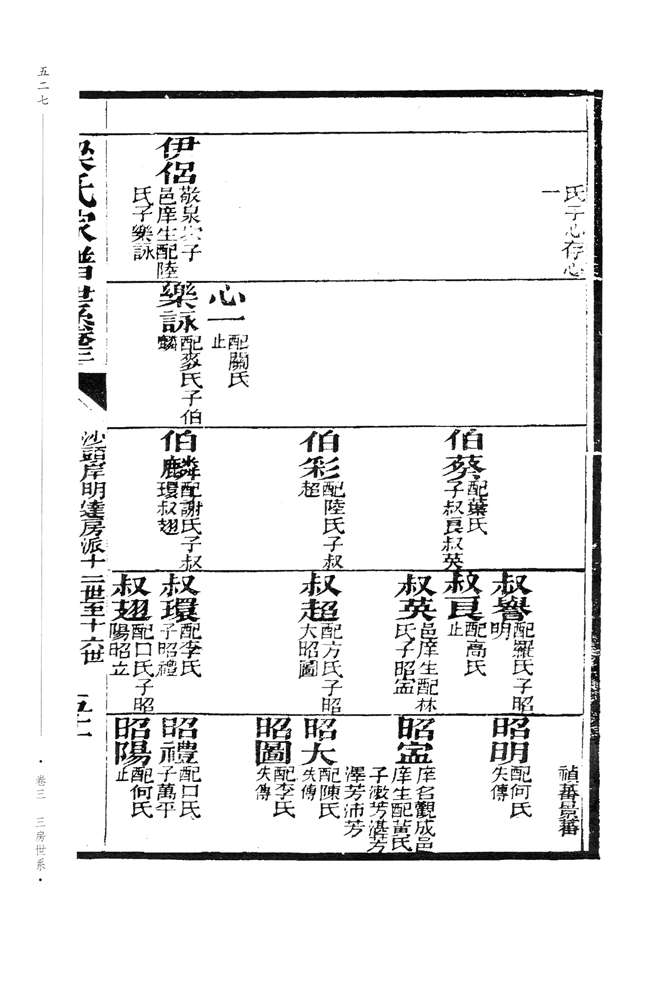 氏子心存心
一
伊侶
敬泉次子
邑庠生配陸
氏子樂詠
心一
配關氏
止
樂詠
配麥氏子伯
麟
伯蔡
配葉氏
子叔良叔英
伯彩
配陸氏子叔
超
伯麟
配謝氏子叔
環叔翅
叔譽
配羅氏子昭
明
叔良
配高氏
止
叔英
邑庠生配林
氏子昭寍
叔超
配方氏子昭
大昭圖
叔環
配李氏
子昭禮
叔翅
配口氏子昭
陽昭立
禎蕃景蕃
昭明
配何氏
失傳
昭寍
庠名觀成邑
庠生配黃氏
子潋芳湛芳
澤芳沛芳
昭大
配陳氏
失傳
昭圖
配李氏
失傳
昭禮
配口氏
子萬平
昭陽
配何氏
止
梁氏家譜世系卷三
沙頭岸明達房派十二世至十六世
五十一
五二七
·卷三 三房世系·